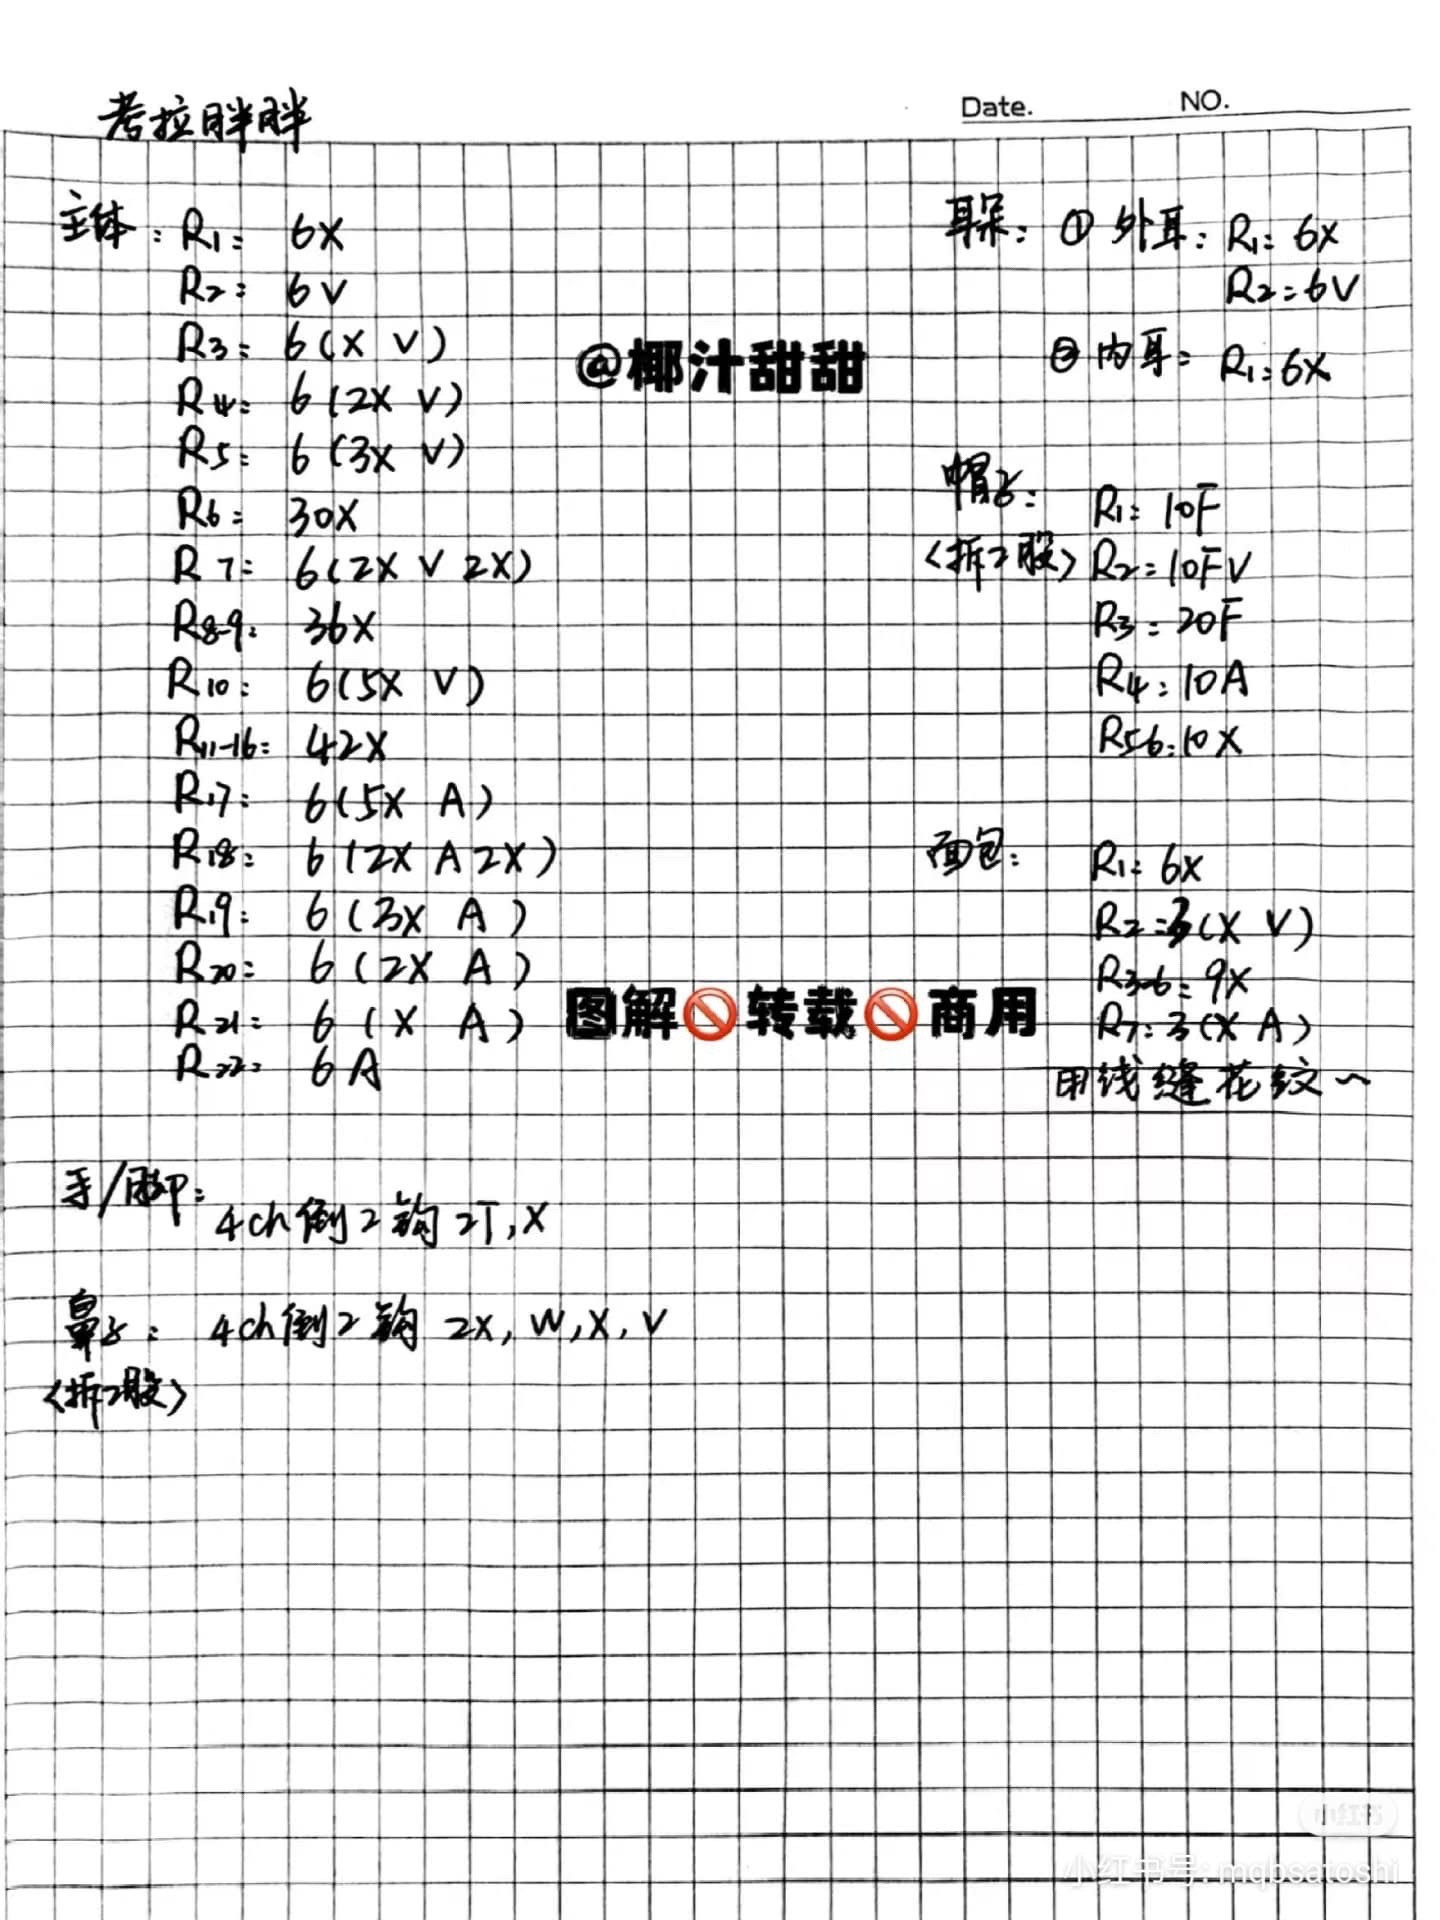 考拉胖胖
Date.
NO.
主体: R1: 6X
R2: 6V
R3: 6(X V)
R4: 6(2X V)
R5: 6(3X V)
R6: 30X
R7: 6(2X V 2X)
R8-9: 36X
R10: 6(5X V)
R11-16: 42X
R17: 6(5X A)
R18: 6(2X A 2X)
R19: 6(3X A)
R20: 6(2X A)
R21: 6(X A)
R22: 6A
手/脚: 4ch倒2钩 2T,X
鼻子: 4ch倒2钩 2X, W, X, V
<拆2股>
@椰汁甜甜
图解🚫转载🚫商用
耳朵: ① 外耳: R1: 6X
R2: 6V
② 内耳: R1: 6X
帽子: R1: 10F
<拆2股> R2: 10FV
R3: 20F
R4: 10A
R5-6: 10X
面包: R1: 6X
R2: 3(X V)
R3-6: 9X
R7: 3(X A)
用线缝花纹~
小红书
小红书号: mqbsatoshi